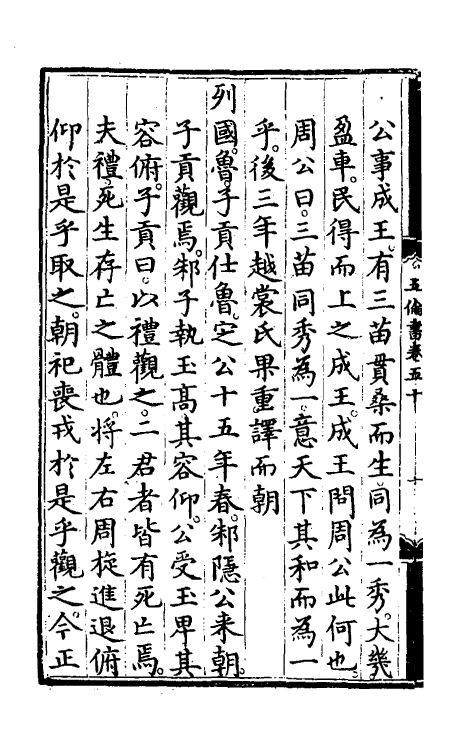 公事成王有三苗貫桑而生同為一秀大幾
盈車民得而上之成王成王問周公此何也
周公曰三苗同秀為一意天下其和而為一
乎後三年越裳氏果重譯而朝
列國魯子貢仕魯定公十五年春邾隱公來朝
子貢觀焉邾子執玉高其容仰公受玉卑其
容俯子貢曰以禮觀之二君者皆有死亡焉
夫禮死生存亡之體也將左右周旋進退俯
仰於是乎取之朝祀喪戎於是乎觀之今正
五倫書卷五十
十